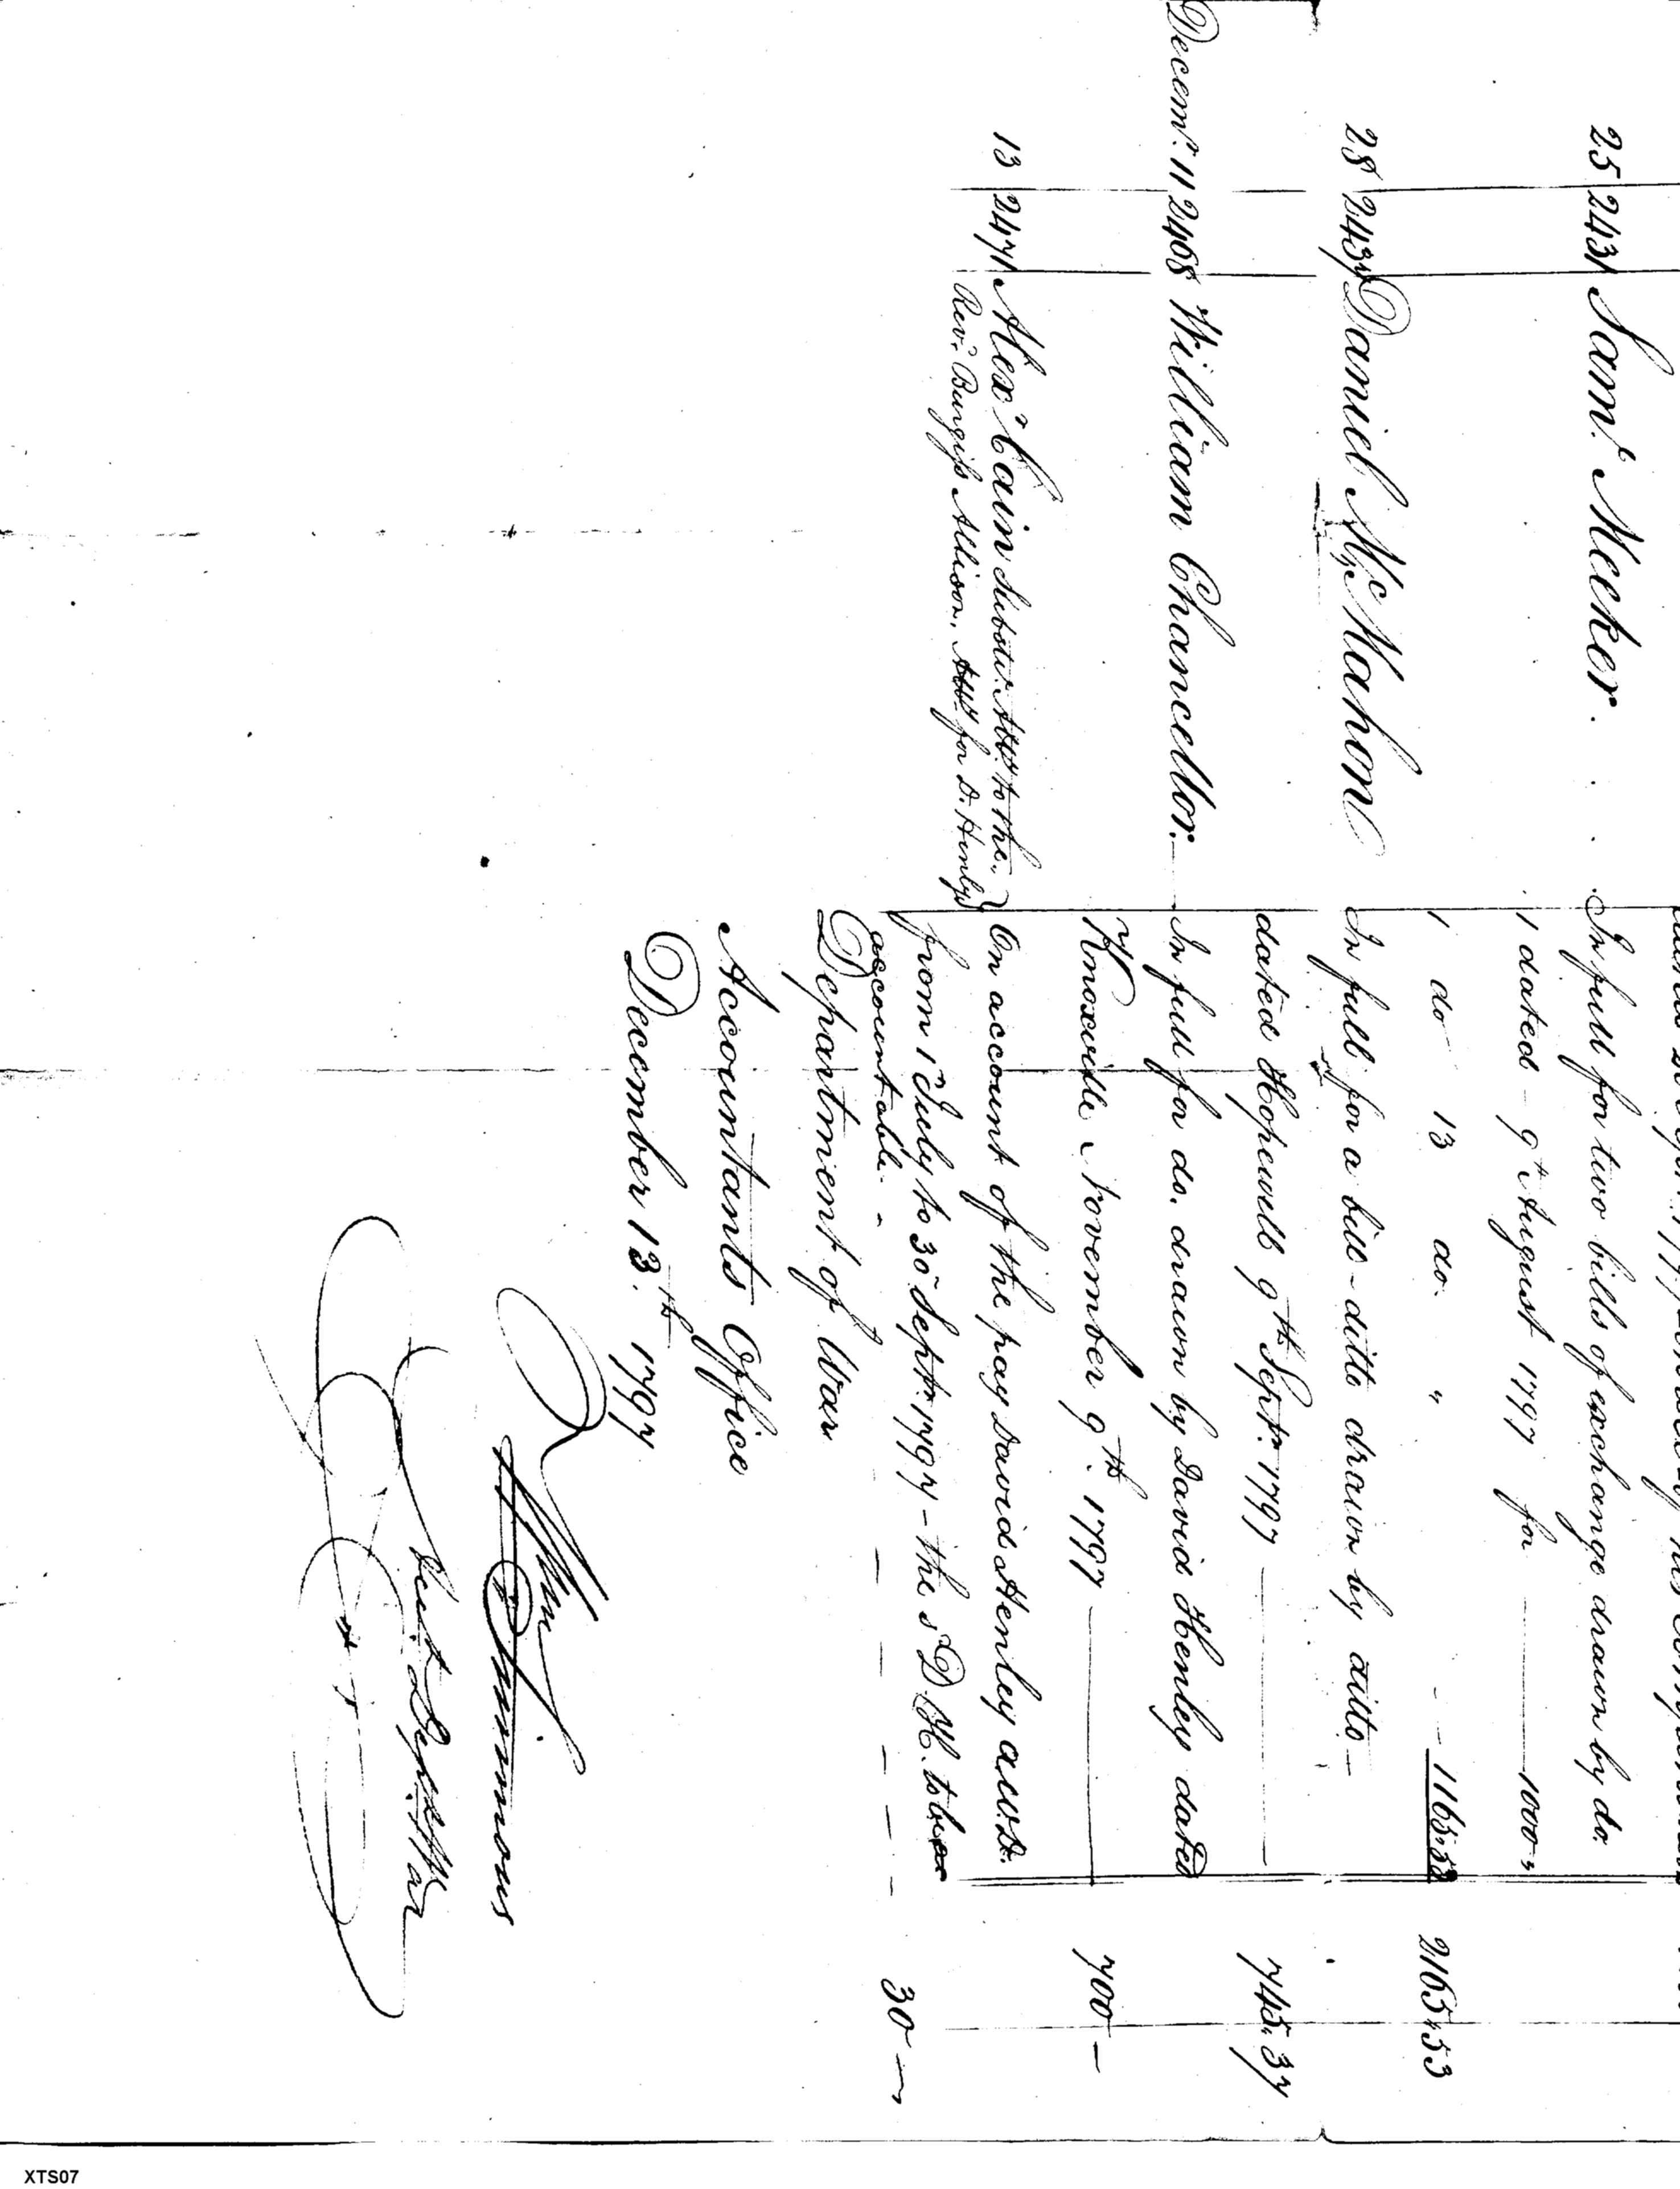 25 2431 Sam.l Meeker . . . In full for two bills of exchange drawn by do.
1 dated - 9th August 1797 for 1000 "
1 do 13 do. " - - 1165.53 2165.53
28 2437 Daniel McMahon In full for a bill - ditto drawn by ditto -
dated Hopewell 9th Septr. 1797 745.37
Decemr. 11 2468 William Chancellor. In full for do. drawn by David Henley dated
Knoxville November 9th. 1797 700 -
13 2471 Alexr. Cain Substr. Atty. to the
Revd. Burgiss Allison, Atty. for D. Henley
On account of the pay David Henley a.w.D.
from 1st July to 30 Septr. 1797 - the sd. D. H. to be
accountable. - 30 -
Department of War
Accountants Office
December 13th. 1797
Wm Simmons
Acct Dept War
XTS07